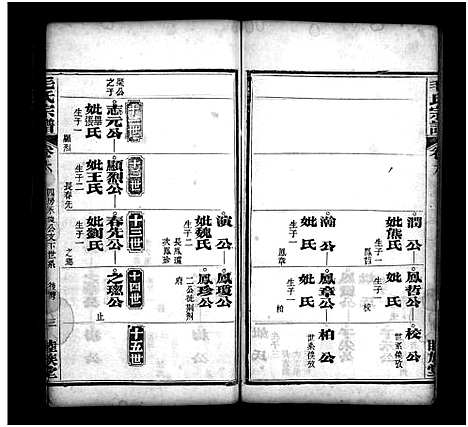 毛氏宗譜
校公
世系後攷
柏公
世系後攷
潤公
妣熊氏
生子一
鳳哲
瀚公
妣氏
生子一
鳳章
鳳哲公
妣氏
生子一
校
鳳章公
妣氏
生子一
柏
十一世
十二世
十三世
十四世
十五世
榮公之子
志元公
生子一
顯烈
顯烈公
妣王氏
生子二
長春先
春先公
妣劉氏
生子一
之璣公
止
演公
妣魏氏
生子二
長鳳瓊
次鳳珍
鳳瓊公
鳳珍公
二公徙荊州府
毛氏宗譜
卷六
睦族堂